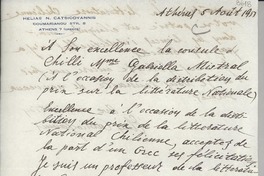 HELIAS N. CATSICOYANNIS
ROUMARIANOU STR. 9
ATHENS
Athènes 5 Août 1951
A Son excellence la consule de
Chilli Mme Gabriella Mistral
(à l'occasion de la distribution du
prix sur la littérature Nationale)
Excellence à l'occasion de la distri-
bution du prix de la littérature
National Chilienne, acceptez de
la part d'un Grec ses félicitations
Je suis un professeur de la